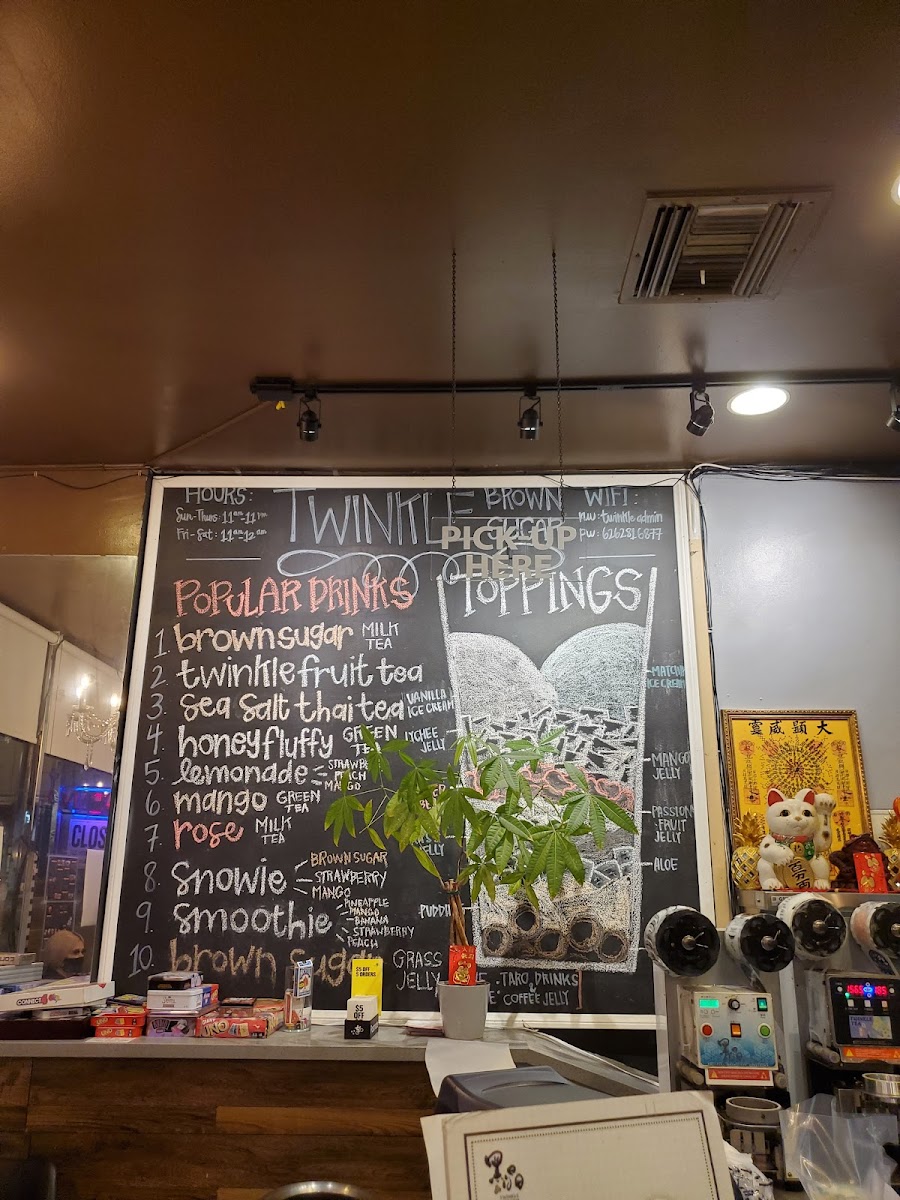 HOURS:
Sun-Thurs: 11am-11pm
Fri-Sat: 11am-12am
TWINKLE
BROWN
SUGAR
WIFI:
nw: twinkle admin
pw: 6262816877
PICK-UP
HERE
POPULAR DRINKS
1. brown sugar MILK TEA
2. twinkle fruit tea
3. sea salt thai tea
4. honey fluffy GREEN TEA
5. lemonade
PEACH
MANGO
6. mango GREEN TEA
7. rose MILK TEA
8. snowie
BROWN SUGAR
STRAWBERRY
MANGO
9. smoothie
PINEAPPLE
MANGO
BANANA
STRAWBERRY
PEACH
10. brown sugar
TOPPINGS
VANILLA
ICE CREAM
LYCHEE
JELLY
MATCHA
ICE CREAM
MANGO
JELLY
PASSION
FRUIT
JELLY
ALOE
GRASS
JELLY
TARO DRINKS
COFFEE JELLY
大顯威靈
CONNECT 4
UNO
$5 OFF
$5
OFF